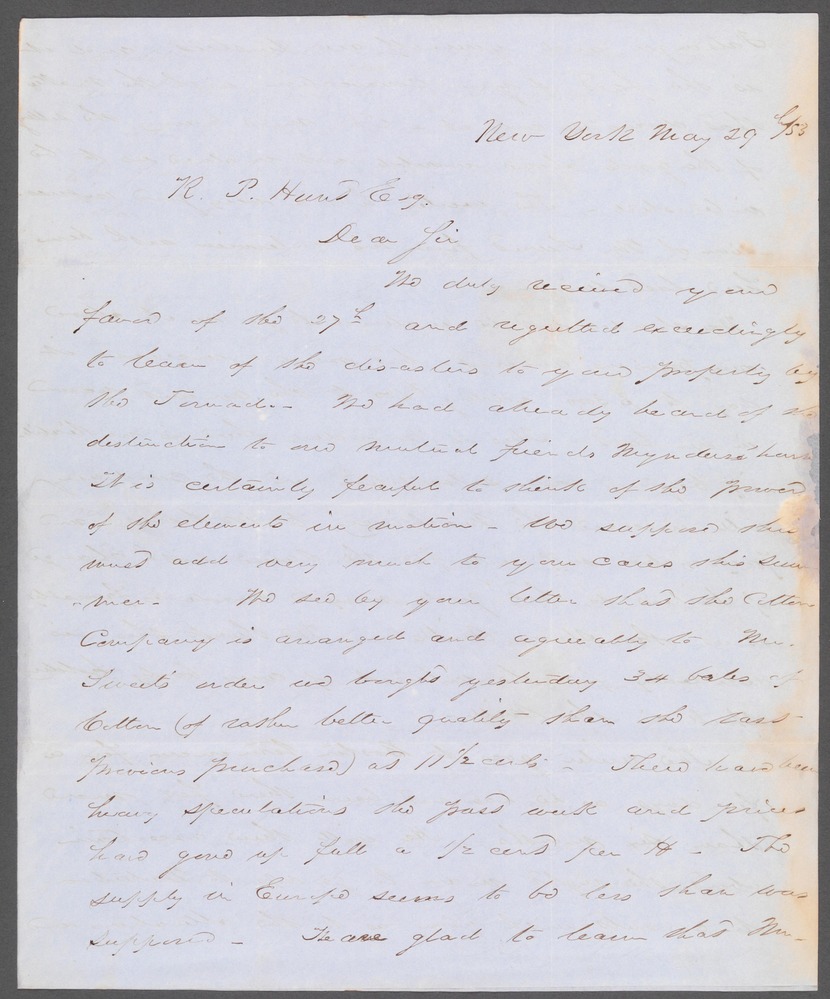 New York May 29th /53
R. P. Hunt Esq.
Dear Sir
We duly received your
favor of the 27th and regretted exceedingly
to learn of the disasters to your property by
the Tornado - We had already heard of the
destruction to our mutual friends Mynderse' barn
It is certainly fearful to think of the power
of the elements in motion - We suppose this
must add very much to your cares this sum
-mer - We see by your letter that the Cotton
Company is arranged and agreeably to Mr.
Sweet's order we bought yesterday 34 bales of
Cotton (of rather better quality than the last
previous purchase) at 11 1/2 cents - There have been
heavy speculations the past week and prices
have gone up full a 1/2 cent per lb - The
supply in Europe seems to be less than was
supposed - We are glad to learn that Mr.